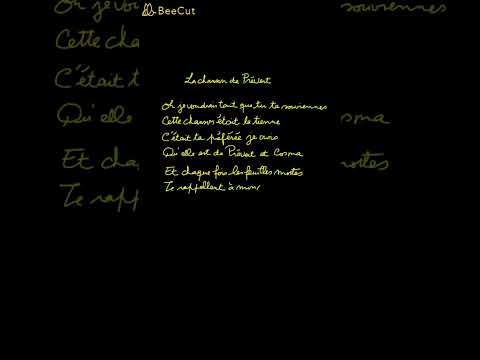 BeeCut
La chanson de Prévert
Oh je voudrais tant que tu te souviennes
Cette chanson était la tienne
C'était ta préférée je crois
Qu'elle est de Prévert et Cosma
Et chaque fois les feuilles mortes
Te rappellent à mon